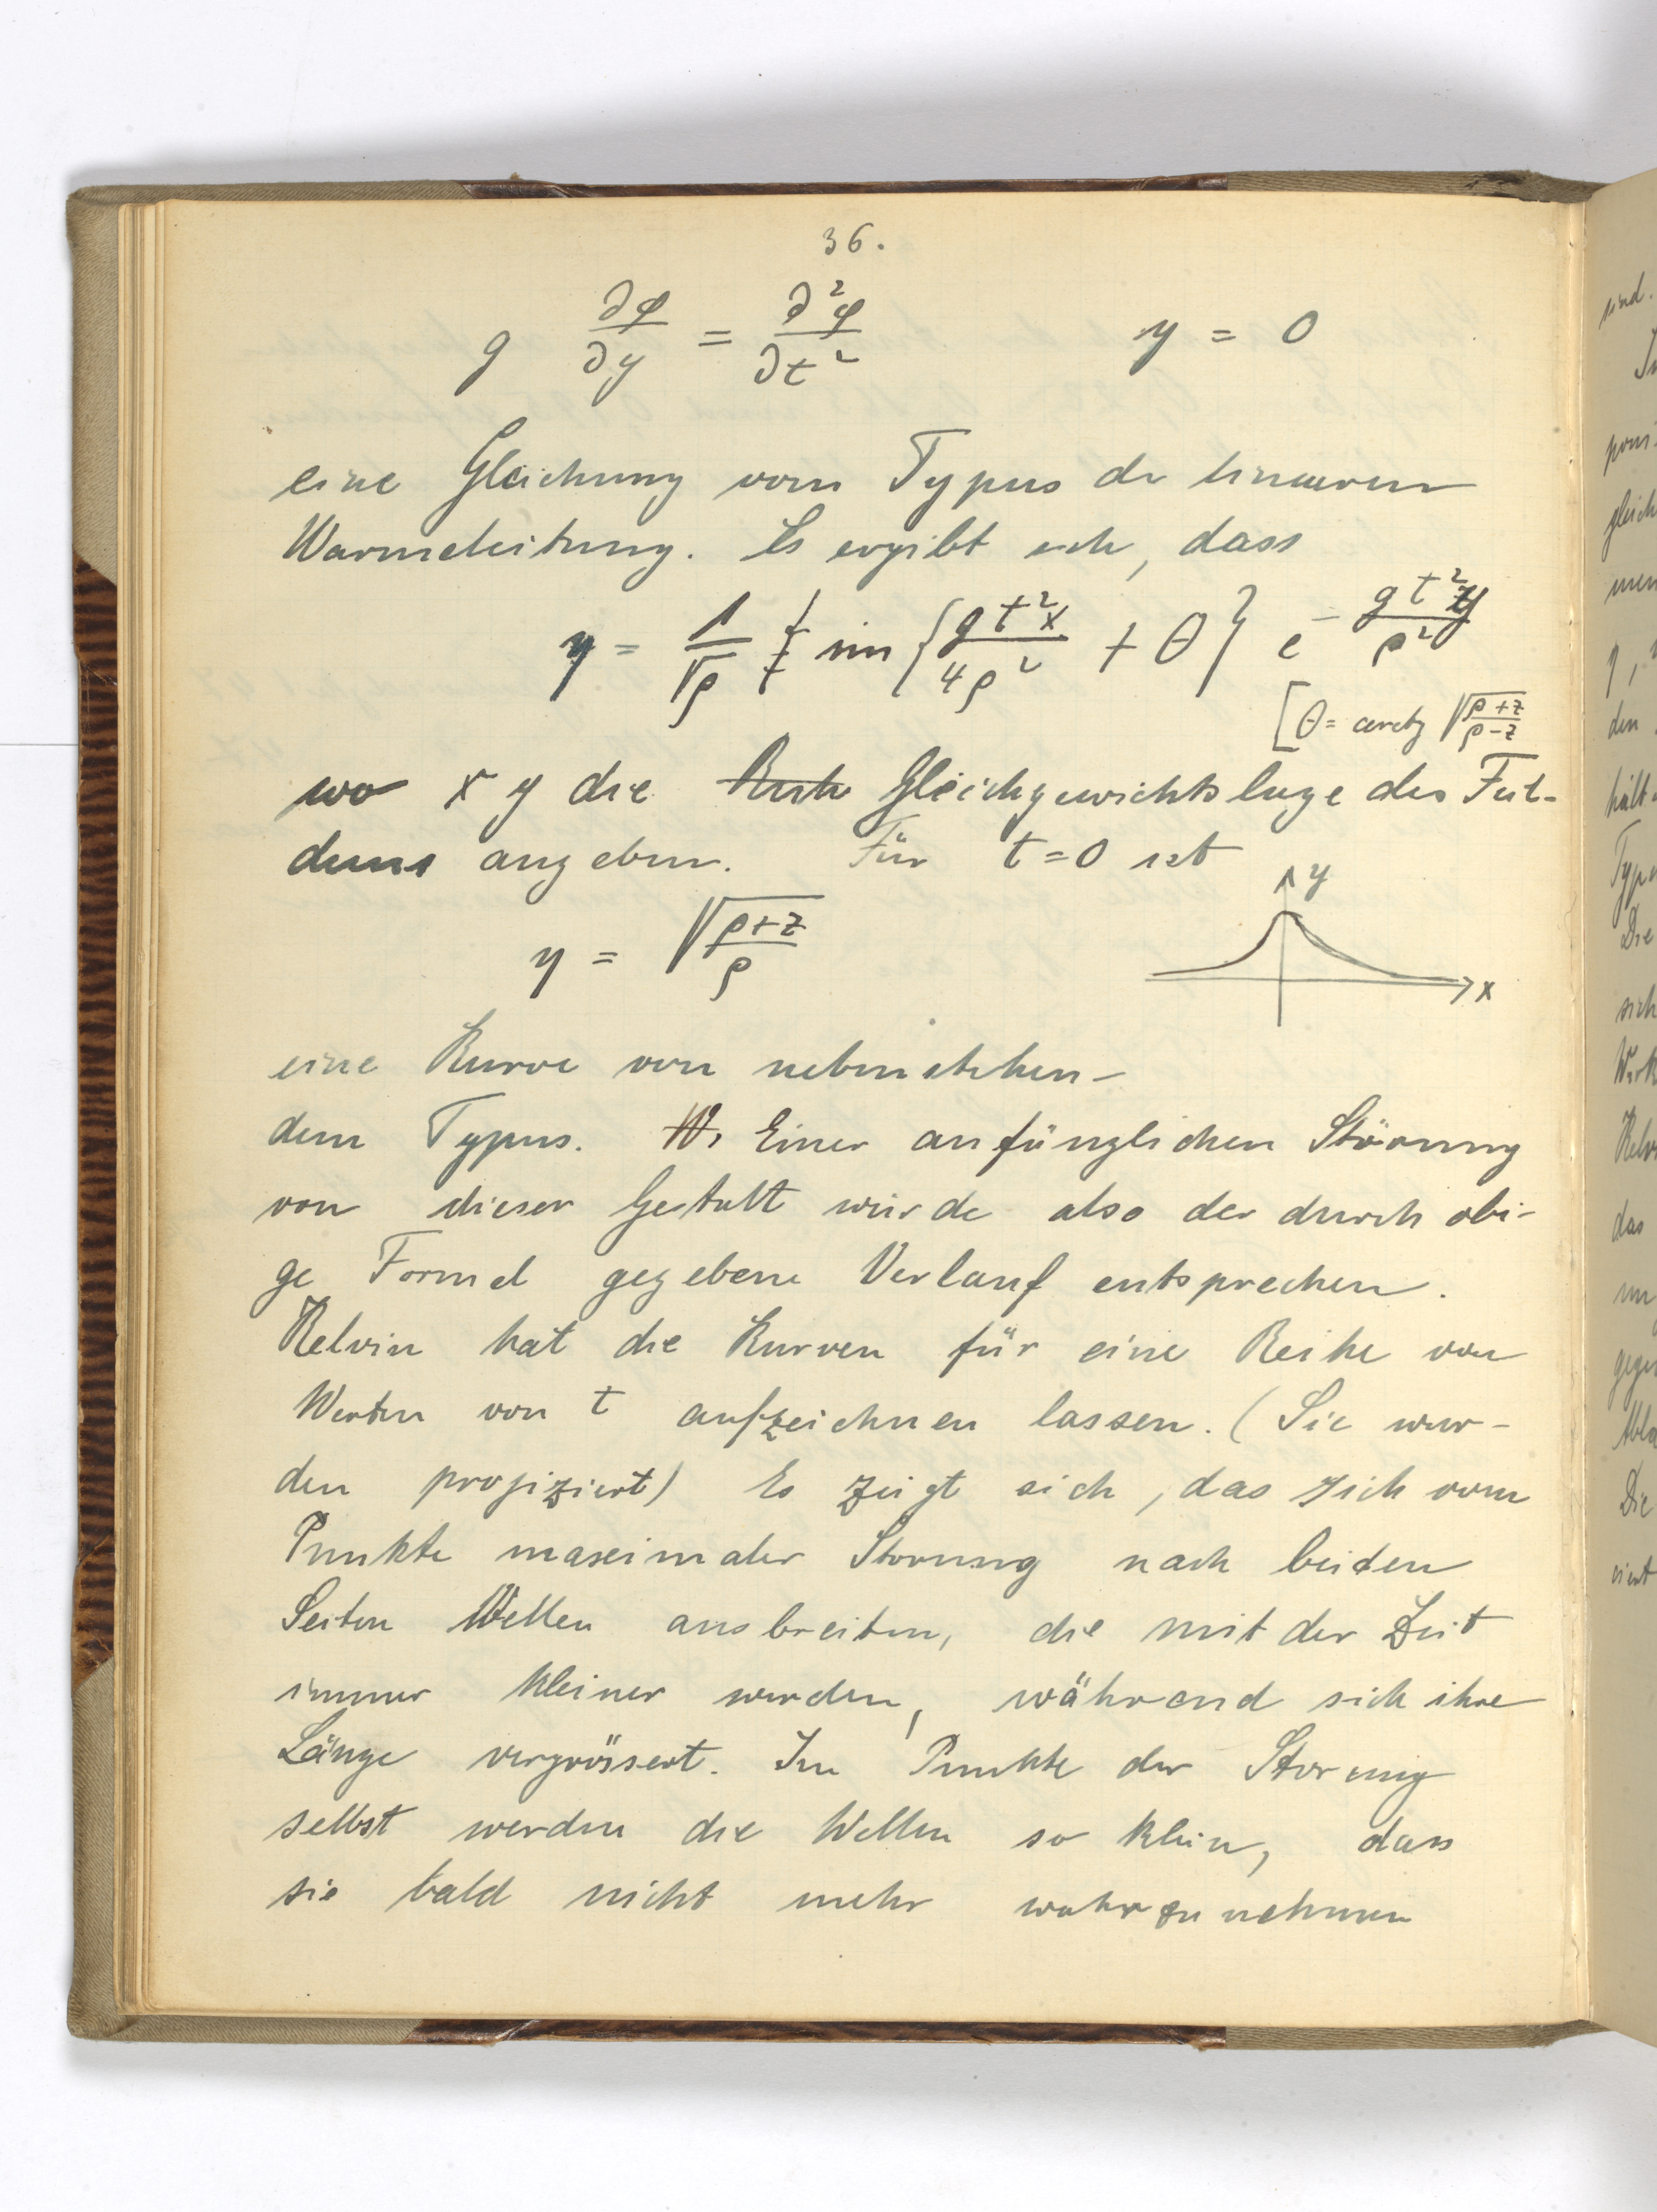 36.
g ∂φ/∂y = ∂²φ/∂t² y = 0
eine Gleichung vom Typus der linearen
Warmeleitung. Es ergibt sich, dass
y = 1/√ρ sin {gt²x/4ρ² + θ} e^(-gt²y/ρ²)
[θ = arctg √(ρ+z/ρ-z)
wo x y die Gleichgewichtslage des
angeben. Für t=0 ist
y
y = √(ρ+z)/ρ
x
eine Kurve von nebenstehen-
dem Typus. Einer anfänglichen Störung
von dieser Gestalt würde also der durch obi-
ge Formel gegebene Verlauf entsprechen.
Kelvin hat die Kurven für eine Reihe von
Werten von t aufzeichnen lassen. (Sie wur-
den projiziert) Es zeigt sich, das sich vom
Punkte maximaler Storung nach beiden
Seiten Wellen ausbreiten, die mit der Zeit
immer kleiner werden, während sich ihre
Länge vergrössert. Im Punkte der Storung
selbst werden die Wellen so klein, dass
sie bald nicht mehr wahrzunehmen